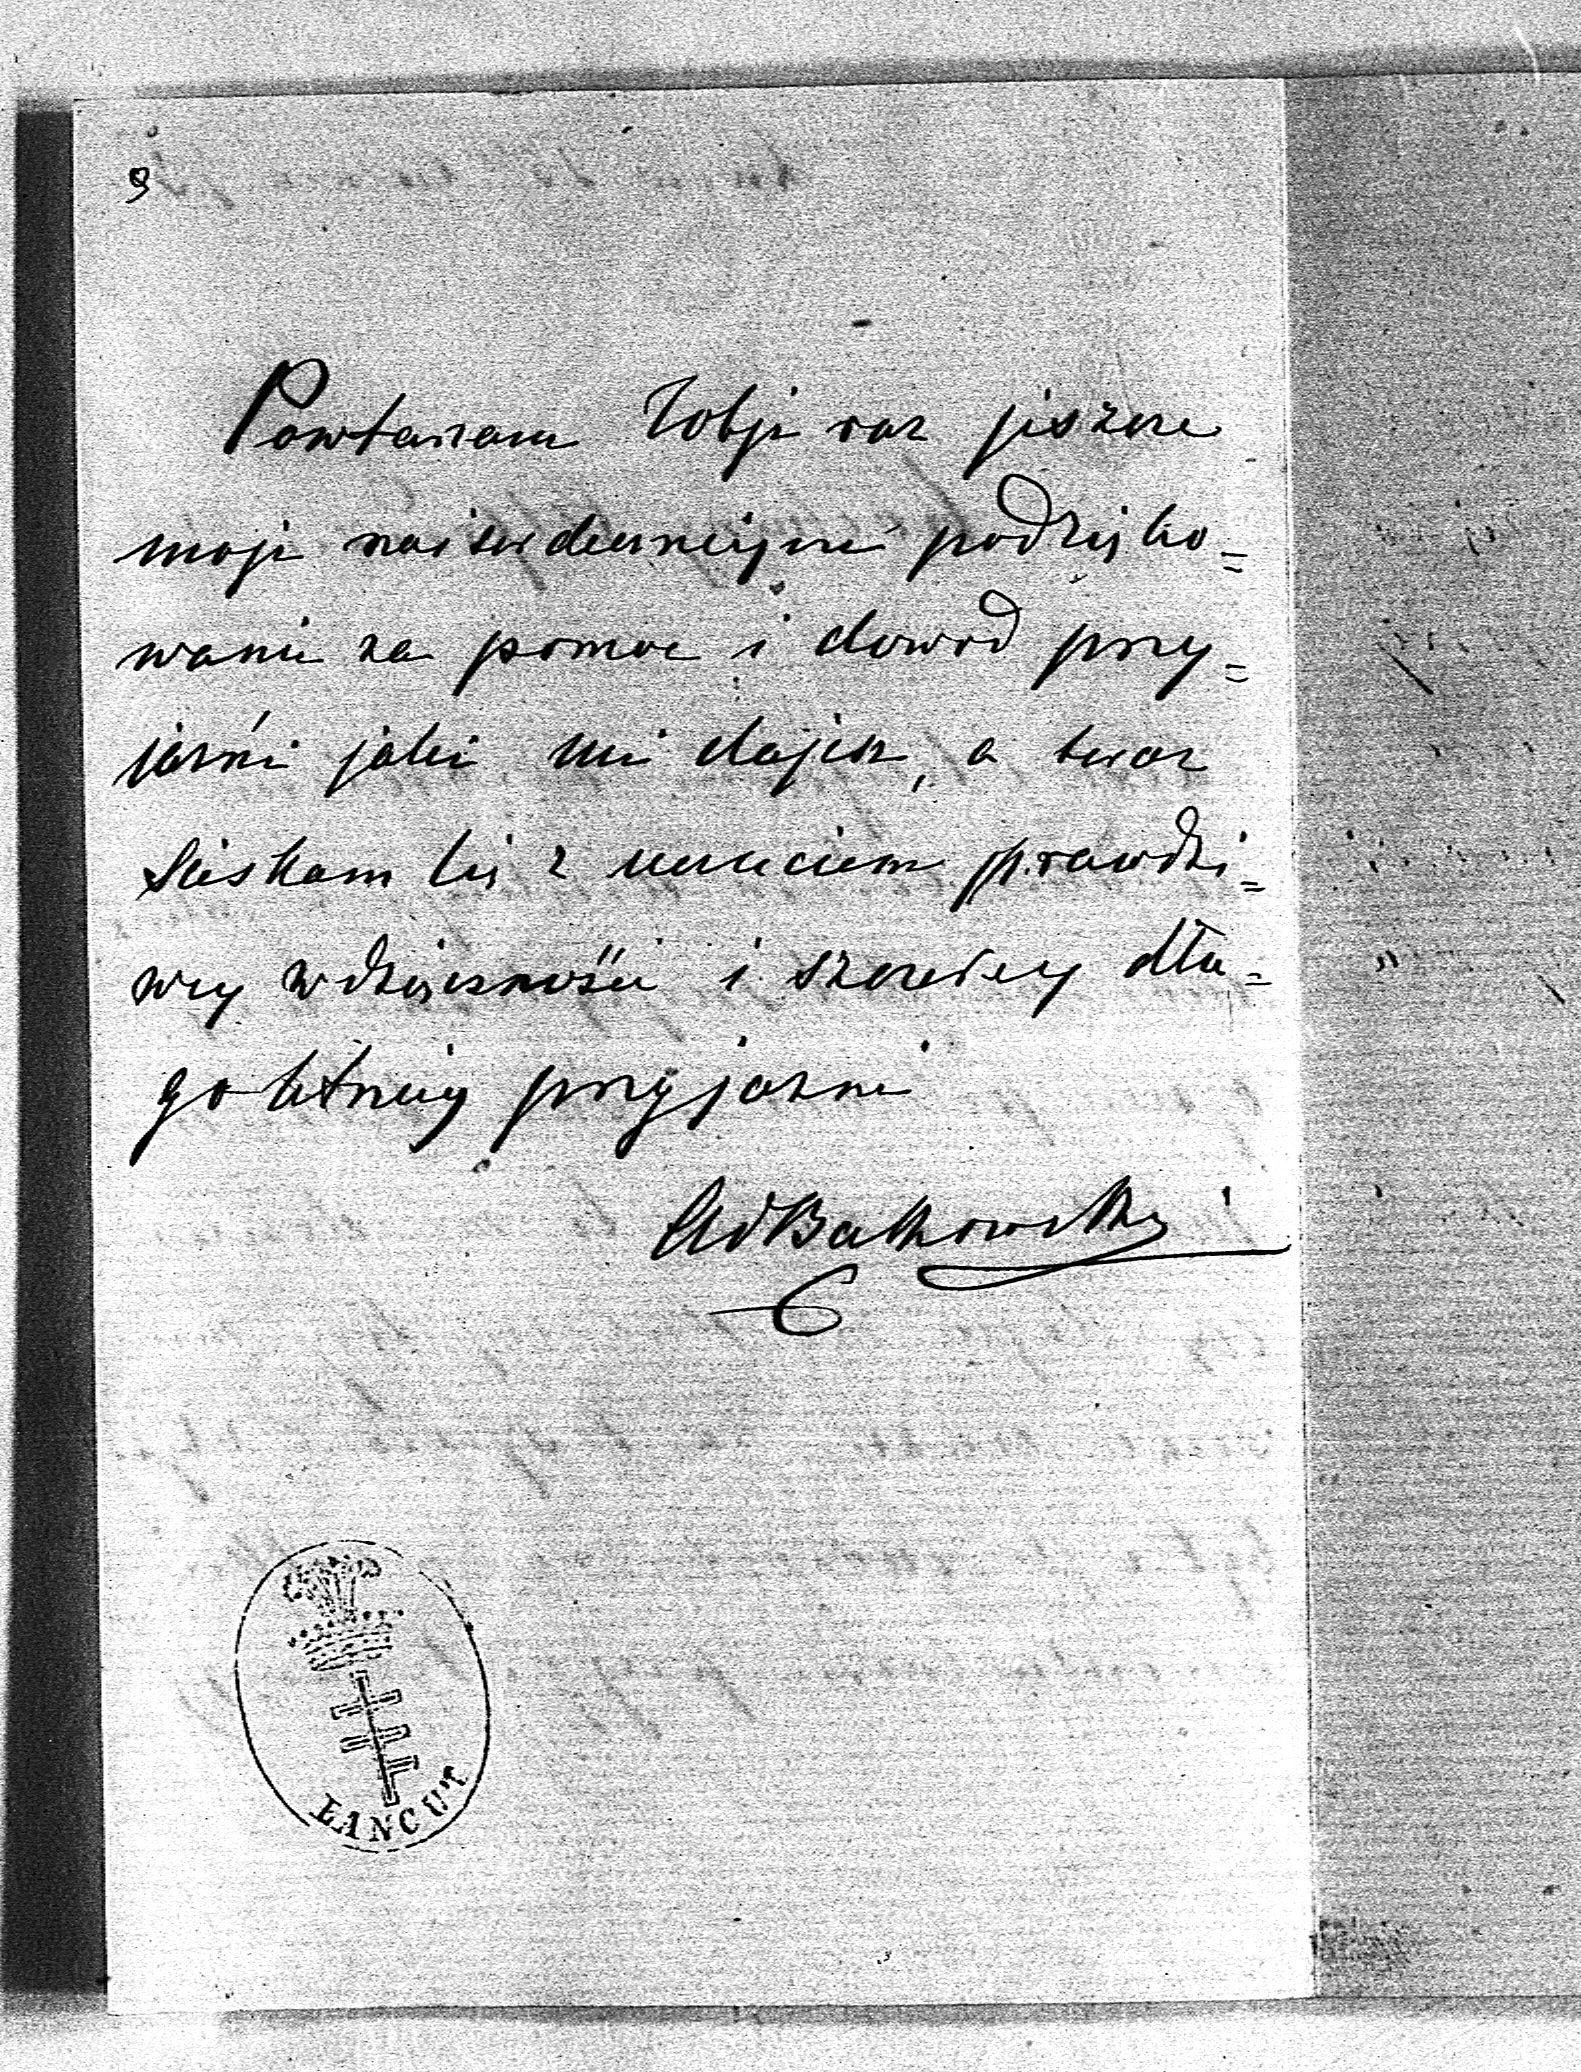 9
Powtarzam Tobje raz jeszcze
moje najserdeczniejsze podzięko=
wanie za pomoc i dowod przy=
jaźni jakie mi dajesz, a teraz
sciskam cię z uczuciem prawdzi=
wey wdzięczności i szczerey dłu=
goletniey przyjazni
AdBatkowski
ŁANCUT